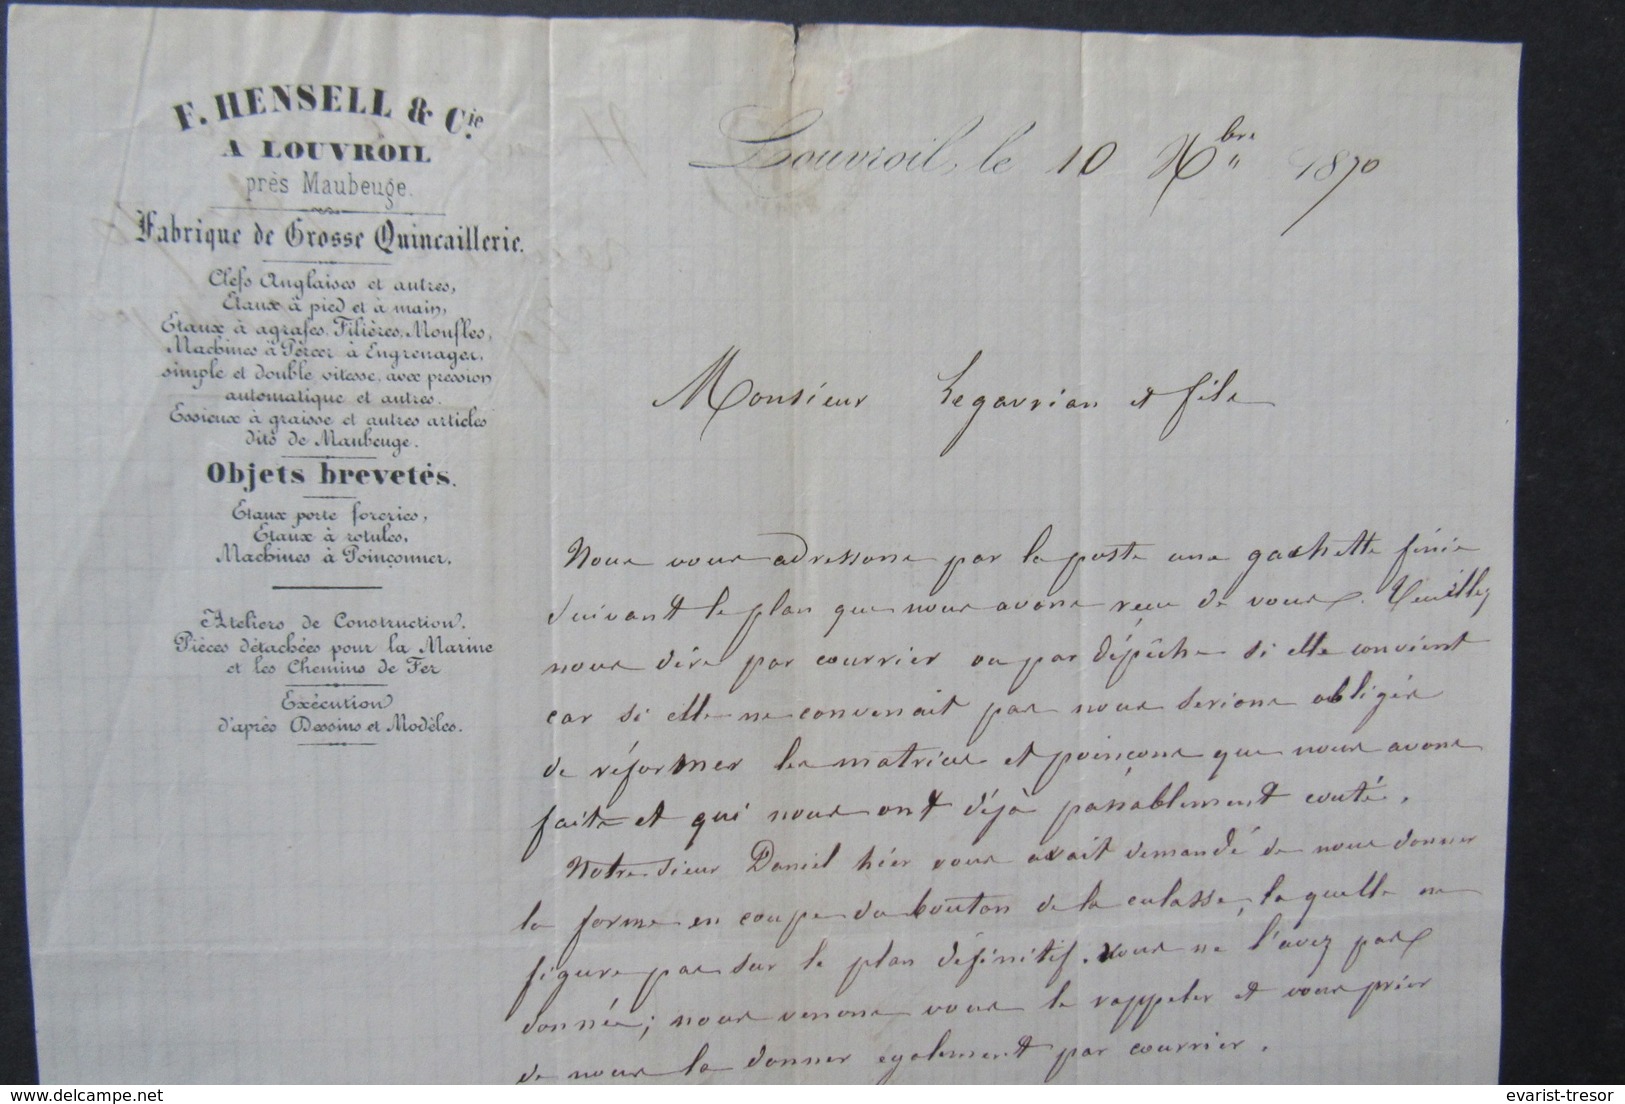 F. HENSELL & Cie.
A LOUVROIL
près Maubeuge.
Fabrique de Grosse Quincaillerie.
Clefs Anglaises et autres,
Etaux à pied et à main,
Etaux à agrafes, Filières, Moufles,
Machines à Percer à Engrenages,
simple et double vitesse, avec pression
automatique et autres.
Essieux à graisse et autres articles
dits de Maubeuge.
Objets brevetés.
Etaux porte foreries,
Etaux à rotules,
Machines à Poinçonner.
Ateliers de Construction.
Pièces détachées pour la Marine
et les Chemins de Fer
Exécution
d'après Dessins et Modèles.
Louvroil, le 10 Xbre 1870
Monsieur Legavrian et fils
Nous vous adressons par la poste une gachette finie
suivant le plan que nous avons reçu de vous. Veuillez
nous dire par courrier ou par dépêche si elle convient
car si elle ne convenait pas nous serions obligés
de réformer les matrices et poinçons que nous avons
faits et qui nous ont déjà passablement couté.
Notre sieur Daniel hier vous avait demandé de nous donner
la forme en coupe du bouton de la culasse, laquelle ne
figure pas sur le plan définitif. vous ne l'avez pas
donnée; nous venons vous le rappeler et vous prier
de nous la donner egalement par courrier.
www.delcampe.net
evarist-tresor